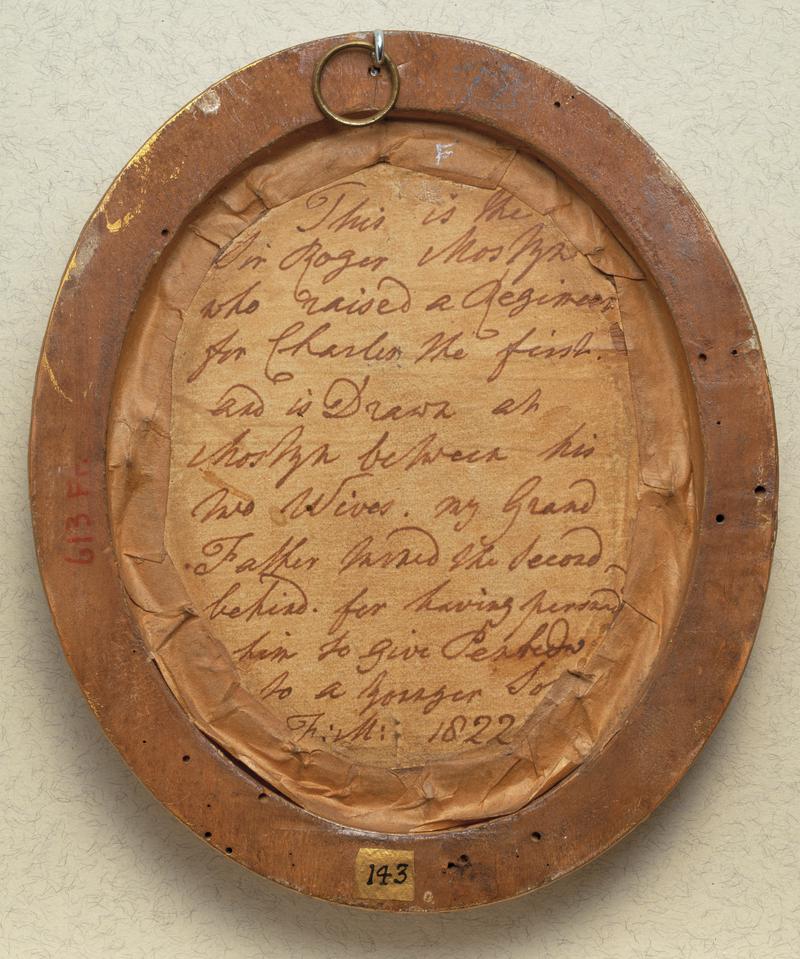 F
This is the
Sir Roger Mostyn
who raised a Regimen
for Charles the first.
and is Drawn at
Mostyn between his
two Wives. my Grand
Father turned the Second
behind. for having persu
him to give Penbedw
to a younger So
F: M: 1822
613 Fr.
143